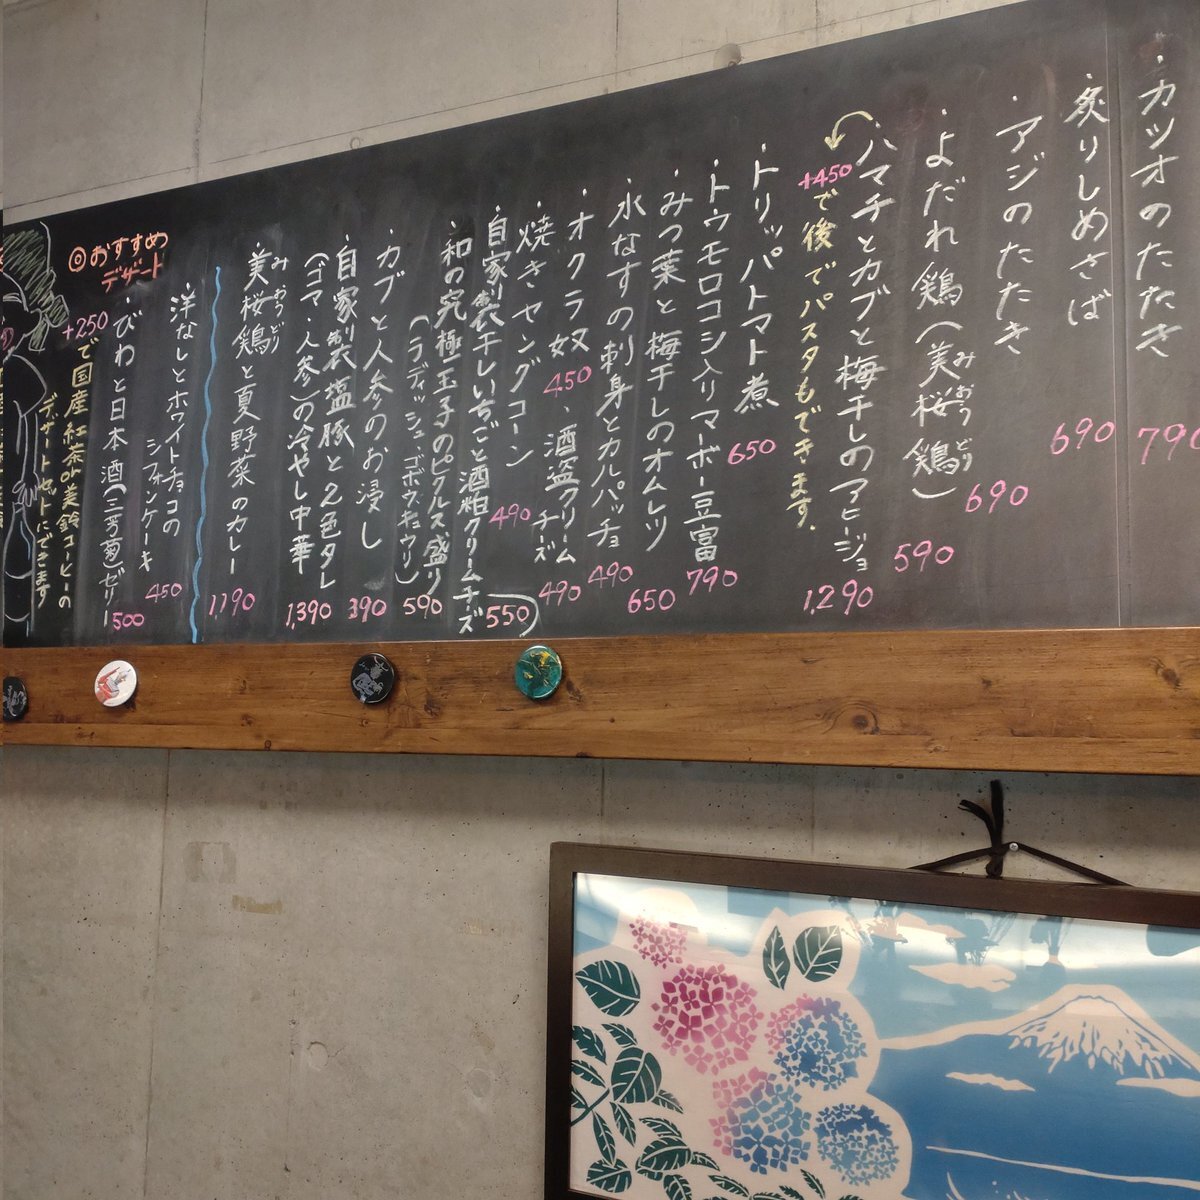 ・カツオのたたき 790
・炙りしめさば 690
・アジのたたき 690
・よだれ鶏(美桜鶏) 590
みおうどり
・ハマチとカブと梅干しのアヒージョ 1,290
+450で後でパスタもできます。
・トリッパトマト煮 650
・トウモロコシ入りマーボー豆富 790
・みつ葉と梅干しのオムレツ 650
・水なすの刺身とカルパッチョ 490
・オクラ奴 450、酒盗クリームチーズ 490
・焼きヤングコーン 490
・自家製干しいちごと酒粕クリームチーズ 550
・和の究極玉子のピクルス盛り 590
(ラディッシュ・ゴボウ・キュウリ)
・カブと人参のお浸し 390
・自家製塩豚と2色タレ
(ゴマ・人参)の冷やし中華 1,390
・美桜鶏と夏野菜のカレー 1,190
みおうどり
◎おすすめ
デザート
・洋なしとホワイトチョコの
シフォンケーキ 450
・びわと日本酒(三芳菊)ゼリー 500
+250で国産紅茶か美鈴コーヒーの
デザートセットにできます